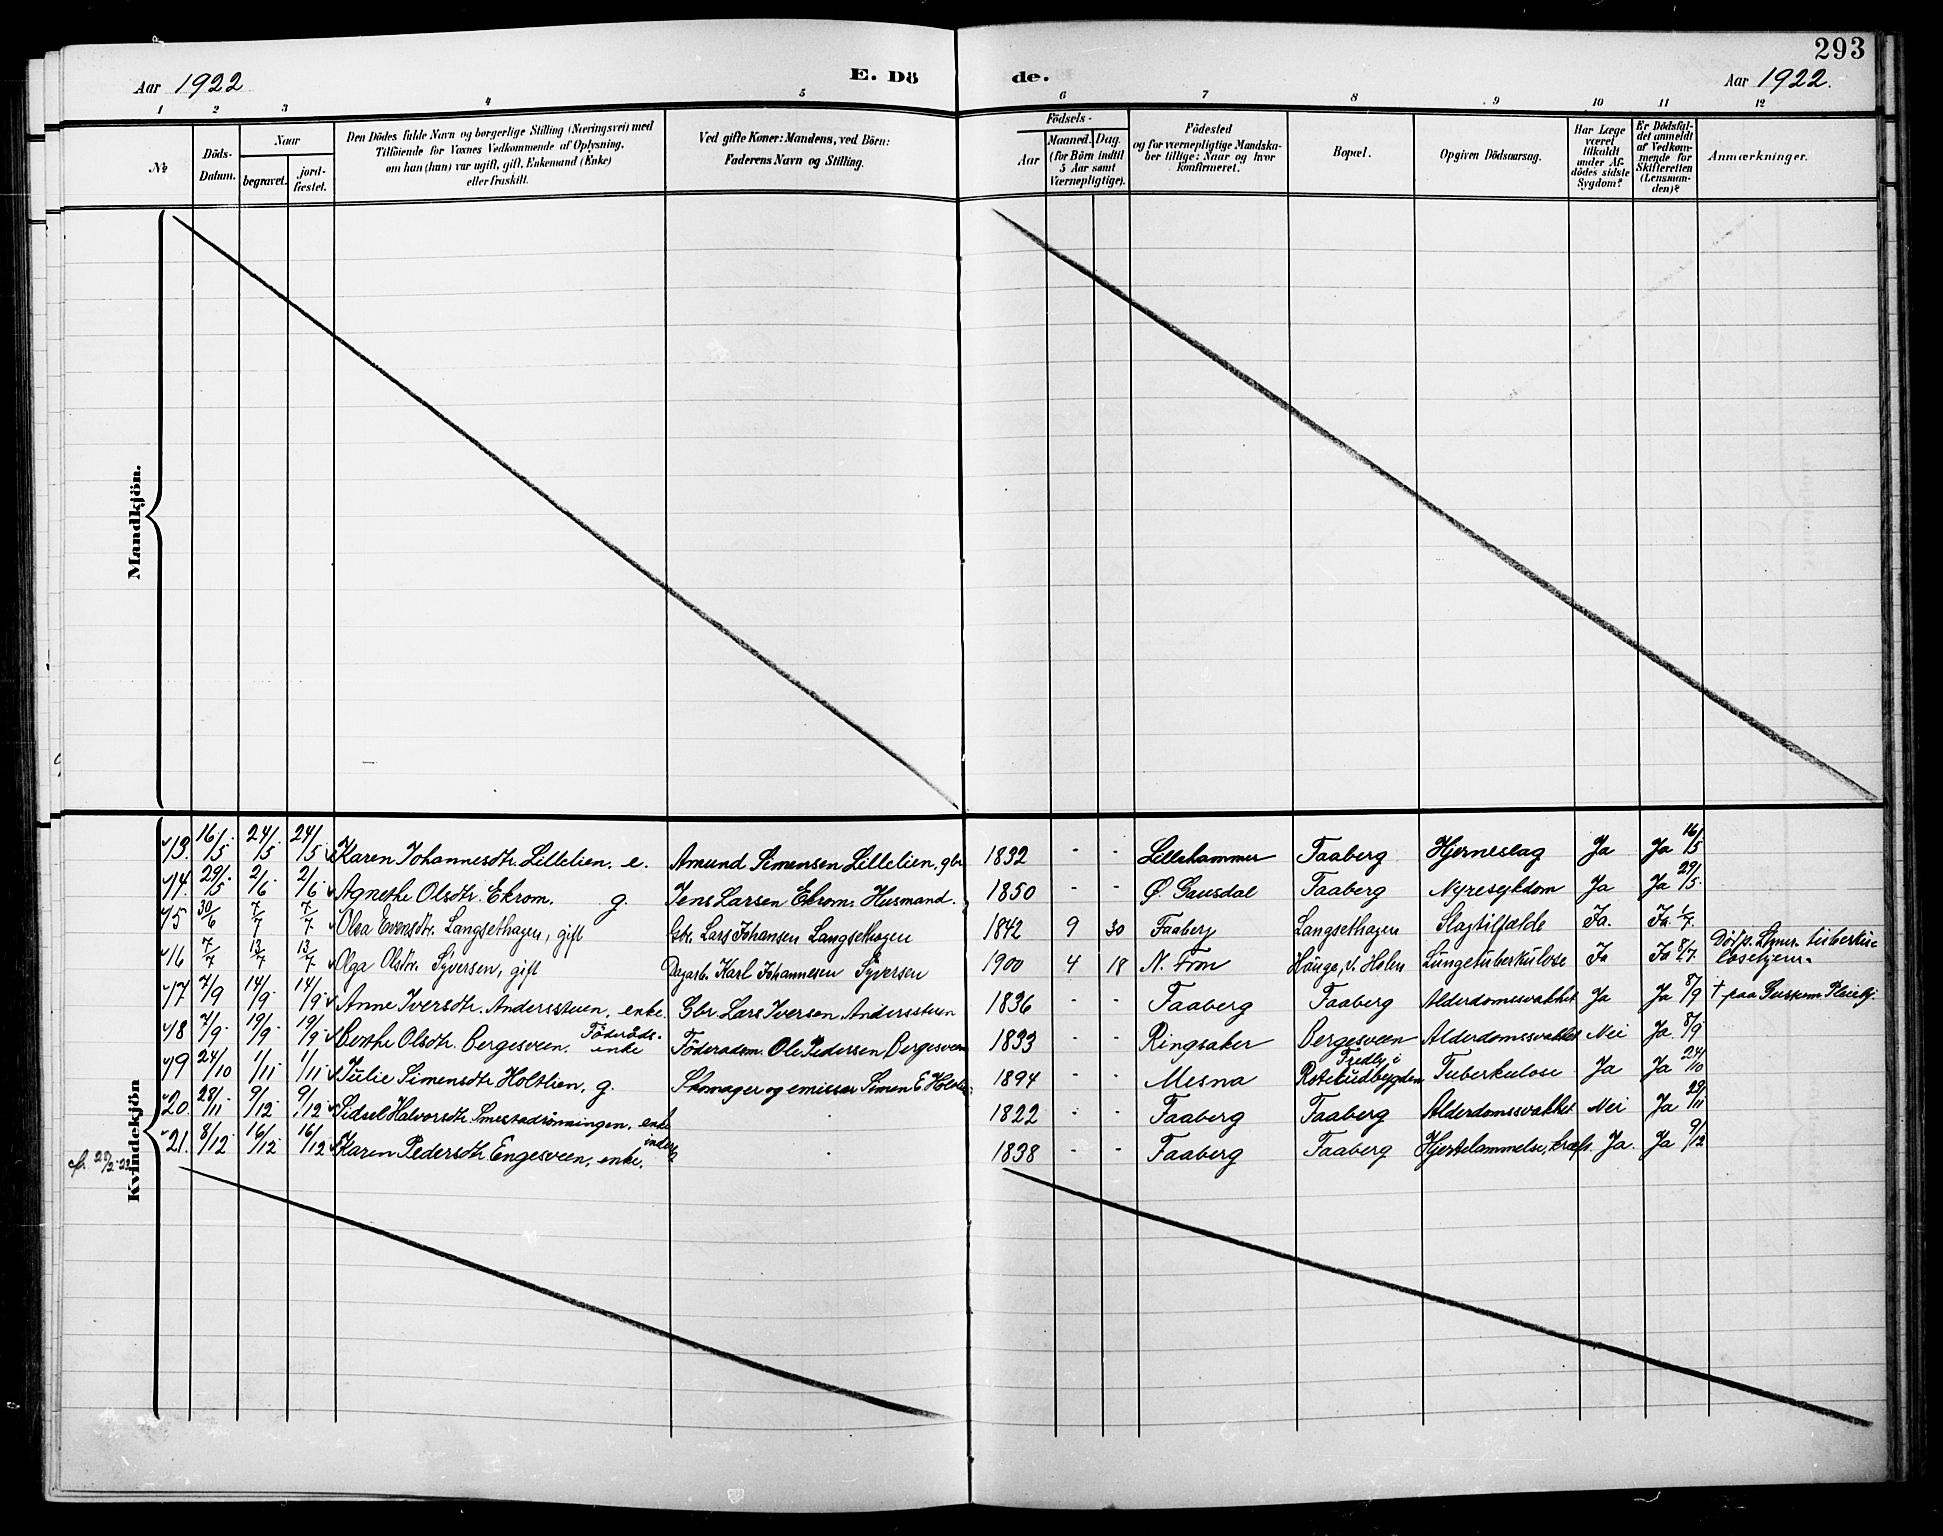 293
Aar 1922
E. Dö
de.
Aar 1922.
1 2 3 4 5 6 7 8 9 10 11 12
No
Döds-Datum.
Naar
begravet.
jord-fæstet.
Den Dödes fulde Navn og borgerlige Stilling (Næringsvei) med
Tilföiende for Voxnes Vedkommende af Oplysning,
om han (hun) var ugift, gift, Enkemand (Enke)
eller fraskilt.
Ved gifte Koner: Mandens, ved Börn:
Faderens Navn og Stilling.
Födsels-
Aar
Maaned. Dag.
(for Börn indtil
5 Aar samt
Værnepligtige).
Födested
og for værnepligtige Mandska-
ber tillige: Naar og hvor
konfirmeret.
Bopæl.
Opgiven Dödsaarsag.
Har Læge
været
tilkaldt
under Af-
dödes sidste
Sygdom?
Er Dödsfal-
det anmeldt
af Vedkom-
mende for
Skifteretten
(Lensman-
den)?
Anmærkninger.
Mandkjön.
Kvindekjön
13. 16/5 24/5 24/5 Karen Johannesdtr. Lillelien. e. Amund Simensen Lillelien, gbr 1832 - - Lillehammer Faaberg Hjerneslag Ja Ja 16/5
14. 29/5 2/6 2/6 Agnethe Olsdtr. Ekrom. g. Jens Larsen Ekrom, Husmand. 1850 - - Ø. Gausdal Faaberg Nyresykdom Ja Ja 29/5
15 30/6 7/7 7/7 Olea Evensdtr. Langsethagen, gift Gbr. Lars Johansen Langsethagen 1842 9 30 Faaberg Langsethagen Slagtilfælde Ja. Ja. 1/7
16 7/7 13/7 13/7 Olga Olsdtr. Syversen, gift Dagarb. Karl Johannesen Syversen 1900 4 18 N. Fron Lungetuberkulose Ja Ja 8/7. Död p. Lhmr. tuberku-
losehjem.
17 7/9 14/9 14/9 Anne Iversdtr. Andersstuen, enke. Gbr. Lars Iversen Andersstuen 1836 - - Faaberg Faaberg Alderdomssvakhet Ja Ja 8/9 † paa
18 7/9. 19/9. 19/9 Berthe Olsdtr. Bergesveen. Föderåds-
enke Föderådsm. Ole Pedersen Bergesveen 1833 - - Ringsaker Bergesveen Alderdomssvakhet Nei Ja. 8/9
19 24/10 1/11 1/11 Julie Simensdtr Holtlien, g. Skomager og emissær Simen E. 1894 - - Mesna Fredly i
Roterudbygden Tuberkulose Ja Ja 24/10
20. 28/11 9/12 9/12 Sidsel Halvorsdtr. Smestadrønningen. enke 1822 - - Faaberg Faaberg Alderdomssvakhet Nei Ja 29/11
21. 8/12 16/12 16/12 Karen Pedersdtr. Engesveen, enke, inders. 1838 - - Faaberg Faaberg Hjertelammelse, kræft. Ja. Ja 9/12